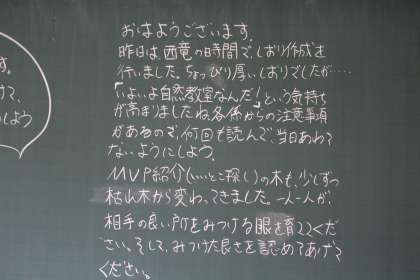 おはようございます。
昨日は、西竜の時間で、しおり作成を
行いました。ちょっぴり厚いしおりでしたが……
「いよいよ自然教室なんだ!」という気持ち
が高まりましたね。各係からの注意事項
があるので、何回も読んで、当日あわて
ないようにしよう。
MVP紹介(いいとこ探し)の木も、少しずつ
枯山木から変わってきました。一人一人が、
相手の良い所をみつける眼を育ててくだ
さい。そして、みつけた良さを認めてあげて
ください。
す。
けて、
しよう